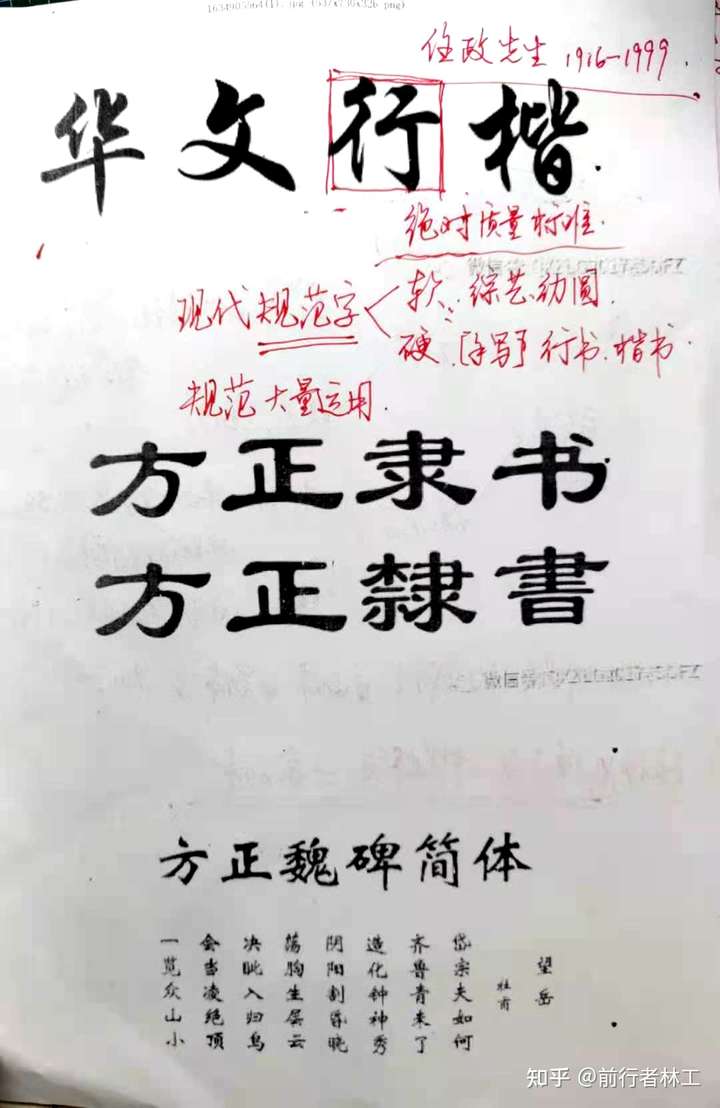 任政先生 1916-1999.
华文行楷.
绝对质量标准.
现代规范字
软: 综艺、幼圆.
硬、[手写] 行书、楷书.
规范大量运用.
方正隶书
方正隸書
方正魏碑简体
望岳
杜甫
岱宗夫如何
齐鲁青来了
造化钟神秀
阴阳割昏晓
荡胸生层云
决眦入归鸟
会当凌绝顶
一览众山小
知乎 @前行者林工